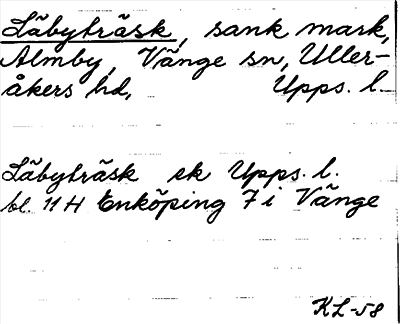 Läbyträsk, sank mark,
Almby, Vänge sn, Uller-
åkers hd, Upps. l.
Läbyträsk ek Upps. l.
bl. 11 H Enköping 7 i Vänge
KL-58